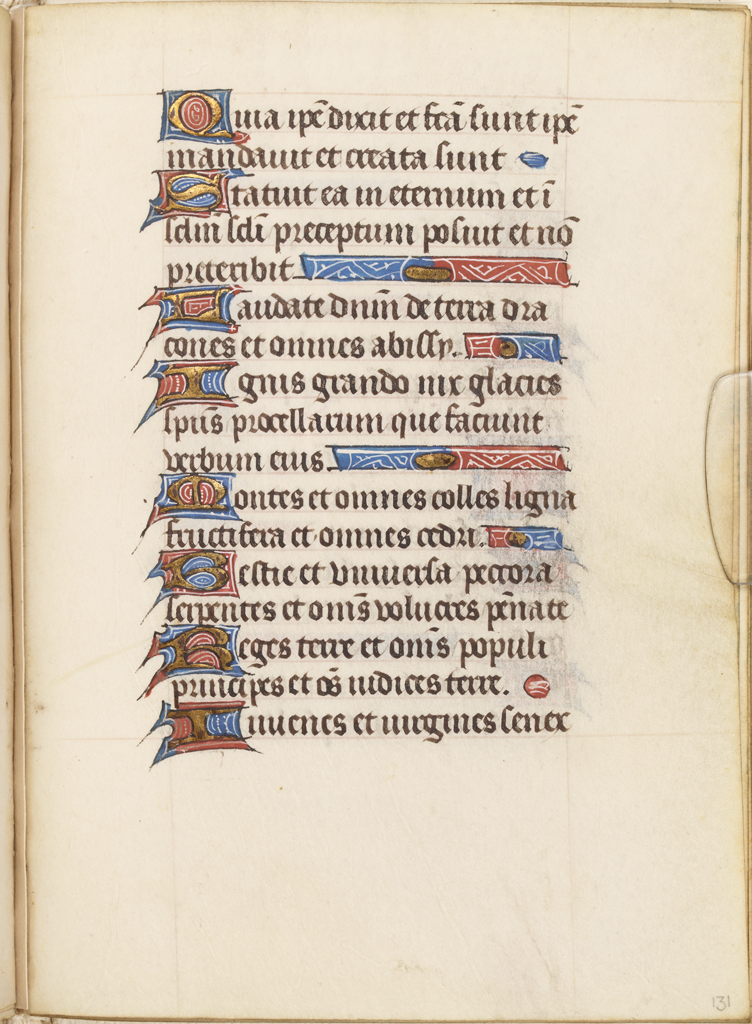 Quia ip̃e dixit et fc̃a sunt ip̃e
mandauit et creata sunt
Statuit ea in eternum et ĩ
sc̃lm̃ sc̃li preceptum posuit et nõ
preteribit
Laudate dñm de terra dra
cones et omnes abissy.
Ignis grando nix glacies
spũs procellarum que faciunt
verbum eius
Montes et omnes colles ligna
fructifera et omnes cedri.
Bestie et vniuersa peccora
serpentes et om̃s volucres pẽnate
Reges terre et om̃s populi
principes et õs iudices terre.
Iuuenes et uirgines senex
131